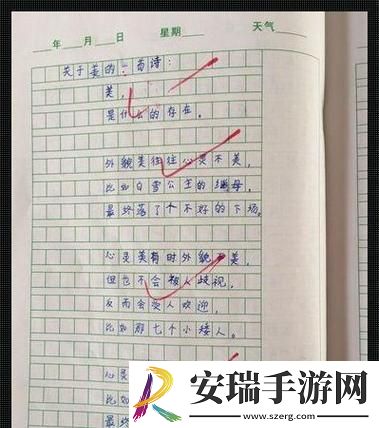 年 月 日 星期 天气
关于美的一首诗：
美，
是什么的存在。
外貌美往往心灵不美，
比如白雪公主的继母，
最终落了个不好的下场。
心灵美有时外貌不美，
但也不会被人歧视，
反而会受人欢迎，
比如那七个小矮人。
心灵
比如
最终
安瑞手游网
www.szerg.com